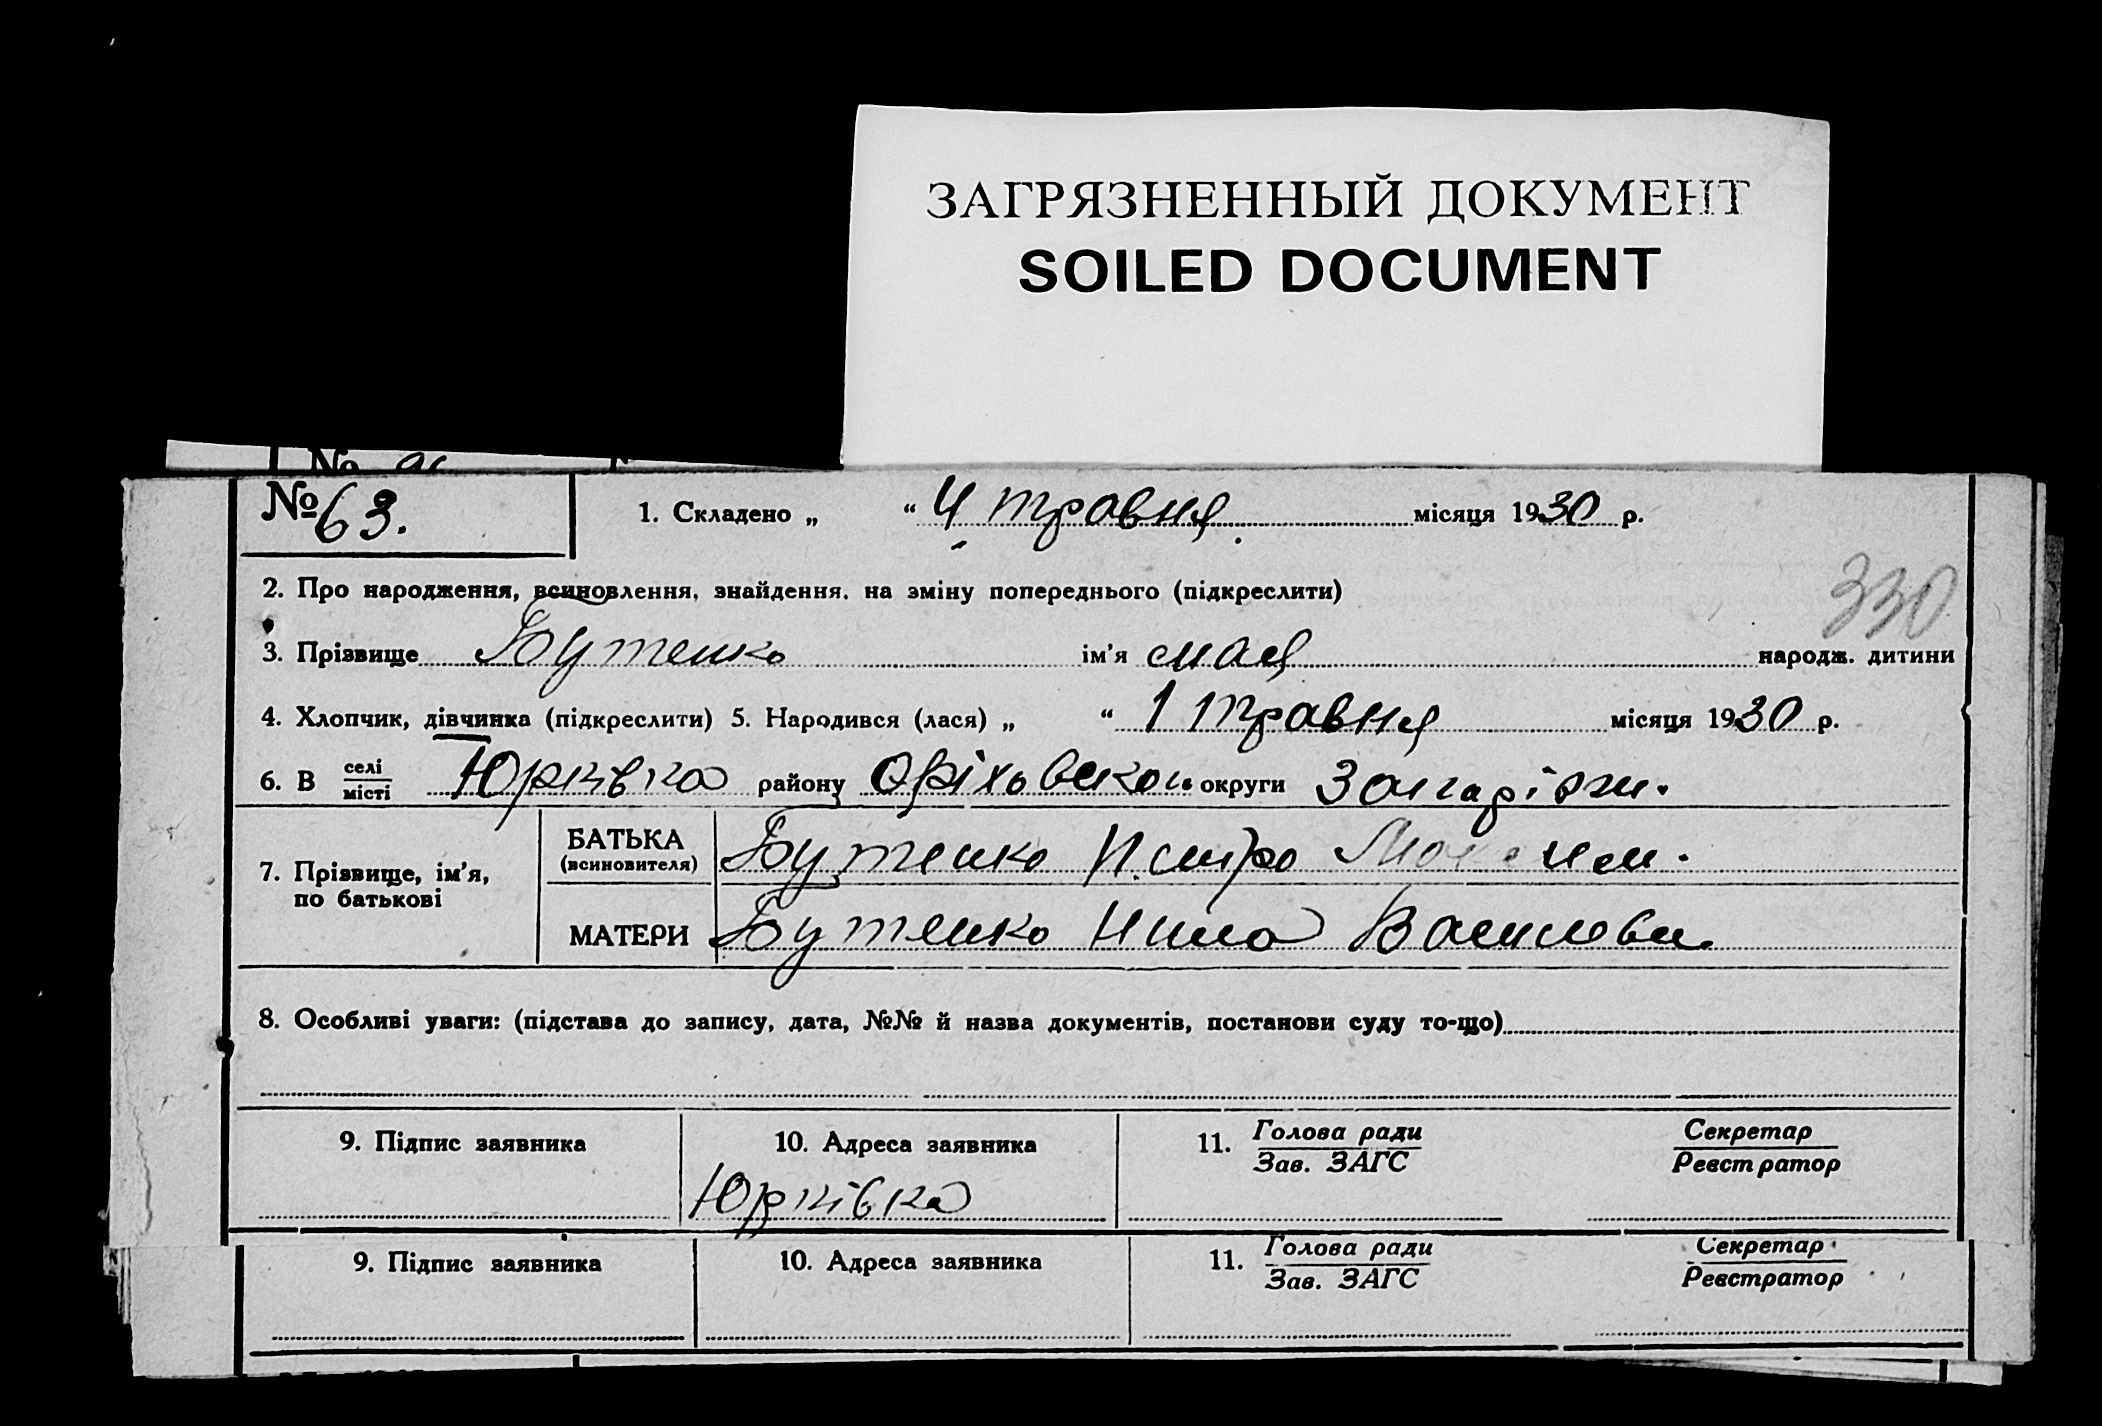 ЗАГРЯЗНЕННЫЙ ДОКУМЕНТ
SOILED DOCUMENT
№
№ 63.
1. Складено „ “ 4 травня місяця 1930 р.
330
2. Про народження, всиновлення, знайдення, на зміну попереднього (підкреслити)
3. Прізвище Бутенко ім'я народж. дитини
4. Хлопчик, дівчинка (підкреслити) 5. Народився (лася) „ “ 1 травня місяця 1930 р.
6. В селі місті Юрківка району Оріховськой округи
7. Прізвище, ім'я, по батькові
БАТЬКА (всиновителя) Бутенко Петро Максим.
МАТЕРИ Бутенко Нина Василевн.
8. Особливі уваги: (підстава до запису, дата, №№ й назва документів, постанови суду то-що)
9. Підпис заявника 10. Адреса заявника 11. Голова ради Зав. ЗАГС Секретар Реєстратор
Юрківка
9. Підпис заявника 10. Адреса заявника 11. Голова ради Зав. ЗАГС Секретар Реєстратор